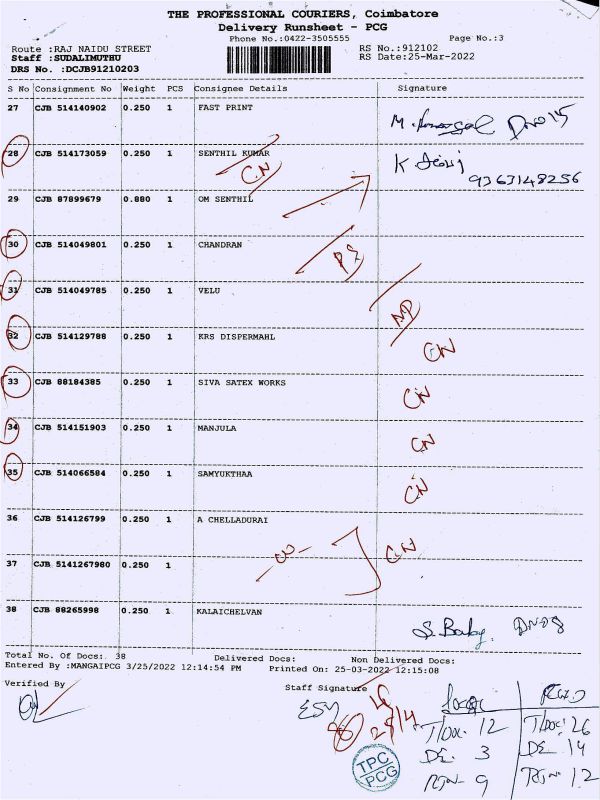 THE PROFESSIONAL COURIERS, Coimbatore
Delivery Runsheet - PCG
Phone No.:0422-3505555
Page No.:3
Route :RAJ NAIDU STREET
RS No.:912102
Staff :SUDALIMUTHU
RS Date:25-Mar-2022
DRS No. :DCJB91210203
S No Consignment No Weight PCS Consignee Details Signature
27 CJB 514140902 0.250 1 FAST PRINT
28 CJB 514173059 0.250 1 SENTHIL KUMAR C.N K.
9363148256
29 CJB 87899679 0.880 1 OM SENTHIL
30 CJB 514049801 0.250 1 CHANDRAN
31 CJB 514049785 0.250 1 VELU
32 CJB 514129788 0.250 1 KRS DISPERMAHL CN
33 CJB 88184385 0.250 1 SIVA SATEX WORKS CN
34 CJB 514151903 0.250 1 MANJULA CN
35 CJB 514066584 0.250 1 SAMYUKTHAA CN
36 CJB 514126799 0.250 1 A CHELLADURAI
C.N
37 CJB 5141267980 0.250 1
38 CJB 88265998 0.250 1 KALAICHELVAN
S. Baby
Total No. Of Docs: 38 Delivered Docs: Non Delivered Docs:
Entered By :MANGAIPCG 3/25/2022 12:14:54 PM Printed On: 25-03-2022 12:15:08
Verified By
Staff Signature
T/Doc. 12 T/Doc: 26
DE. 3 DE. 14
RTN 9 RTN 12
TPC
PCG